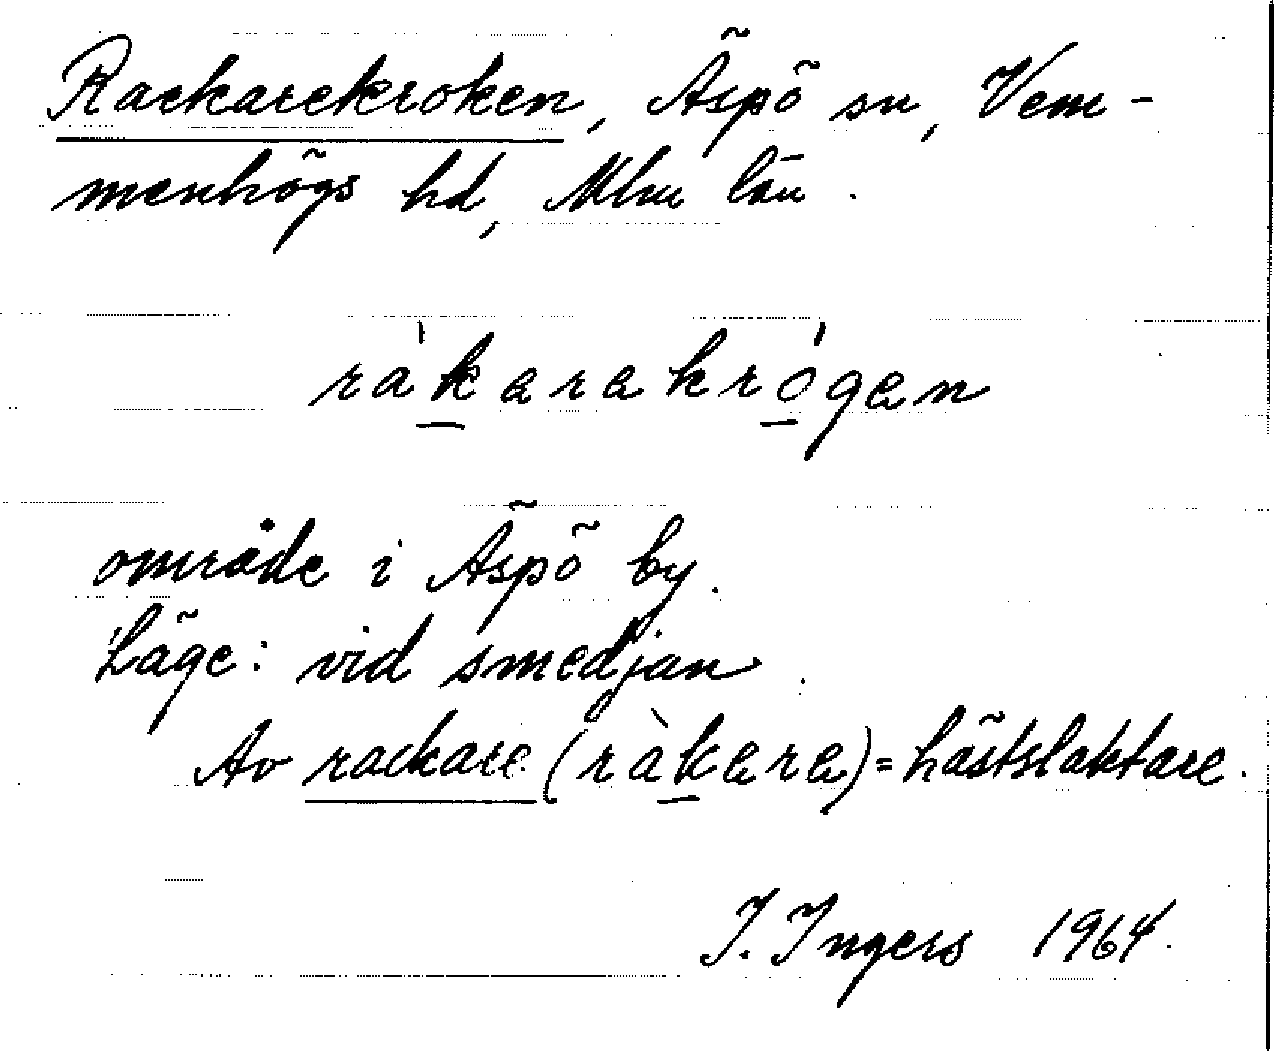 Rackarekroken, Äspö sn, Vem-
menhögs hd, Mlm län.
ràkarakrógen
område i Äspö by.
Läge: vid smedjan.
Av rackare (ràkara) = hästslaktare.
I. Ingers 1964.